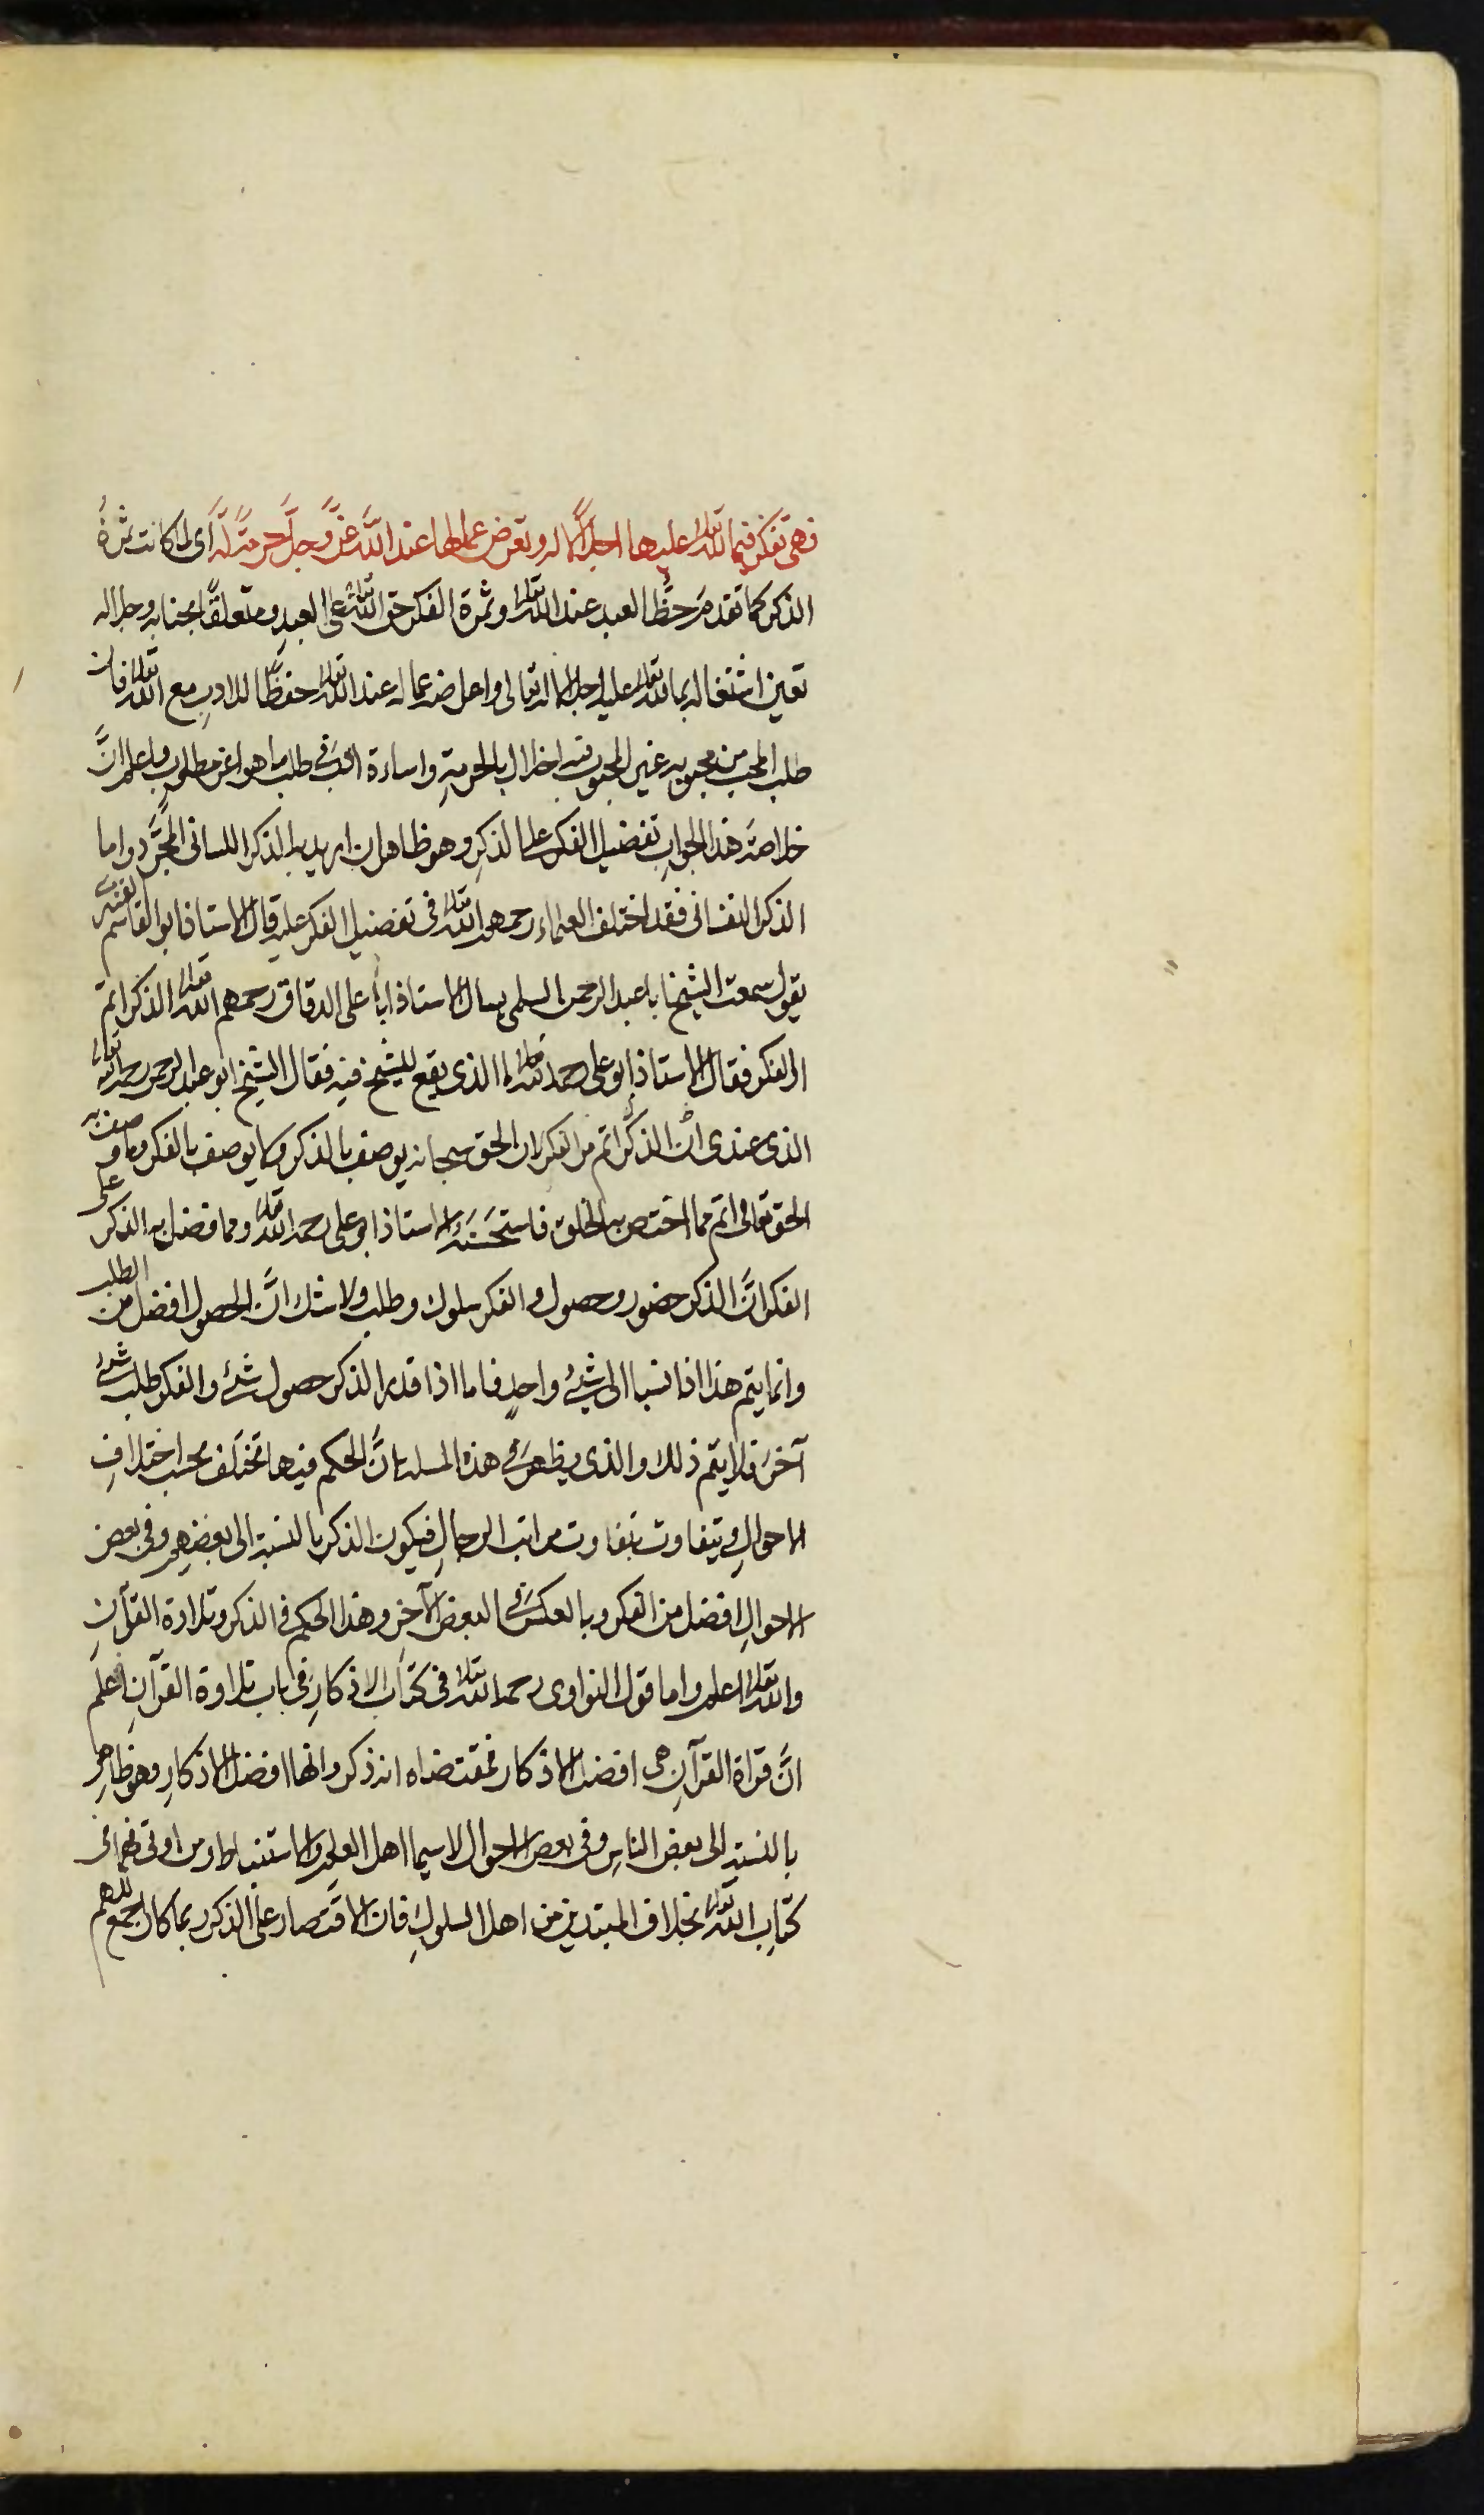 فهى تفكر فيما لله تعالى عليها اجلالا له وتعرض عما لها عند الله عزَّ وجلَّ حرمةً لَه اى لما كانت ثمرةُ
الذكر كما تقدم حظًّا لعبد عند الله تعالى وثمرة الفكر حق الله تعالى على العبدِ ومتعلقًا بجنابه وجلاله
تعين اشتغاله بما لله تعالى عليه اجلالا له تعالى واعراضه عما له عند الله تعالى حفظًا للادبِ مع الله تعالى فان
طلب المحب من محبوبه غير المحبوب فيه اخلال بالحرمةِ واساءة ادب فى طلب ما هو اعز مطلوب واعلم انَّ
خلاصة هذا الجوابِ تفضيل الفكر على الذكرِ وهو ظاهر ان اريد به الذكر اللسانى المجرَّد واما
الذكر النفسانى فقد اختلف العلماء رحمهم الله تعالى فى تفضيل الفكر عليه قال الاستاذ ابو القاسم القشيرى
يقول سمعت الشيخ ابا عبد الرحمن السلمى يسال الاستاذ ابا على الدقاق رحمهم الله تعالى الذكر اتم
ام الفكر فقال الاستاذ ابو على رحمه الله تعالى ما الذى يقع للشيخ فيه فقال الشيخ ابو عبد الرحمن رحمه الله تعالى
الذى عندى انَّ الذكر اتم من الفكر لان الحق سبحانه يوصف بالذكر ولا يوصف بالفكر وما وصف به
الحق تعالى اتم مما اختص به الخلق فاستحسنه الاستاذ ابو على رحمه الله تعالى ومما فضل به الذكر على
الفكر انَّ الذكر حضور وحصول والفكر سلوك وطلب ولا شك انَّ الحصول افضل من الطلب
وانما يتم هذا اذا نسبا الى شئٍ واحدٍ فاما اذا قدر الذكر حصول شئ والفكر طلب شئ
آخرَ فلا يتم ذلك والذى يظهر فى هذه المسلة انَّ الحكم فيها تختلف بحسب اختلافِ
الاحوالِ ويتفاوت بتفاوت مراتب الرجالِ فيكون الذكر بالنسبة الى بعضهم وفى بعض
الاحوالِ افضل من الفكر وبالعكس فى البعض الآخر وهذا الحكم فى الذكر وتلاوة القرآنِ
والله تعالى اعلم واما قول النواوى رحمه الله تعالى فى كتاب الاذكارِ فى باب تلاوة القرآنِ اعلم
انَّ قراة القرآنِ هى افضل الاذكار فمقتضاه انه ذكر وانها افضل الاذكارِ وهو ظاهر
بالنسبة الى بعض الناسِ وفى بعض الاحوال لا سيما اهل العلمِ والاستنباط ومن اوتى فهما فى
كتابِ الله تعالى بخلاف المبتدئين من اهل السلوكِ فان الاقتصار على الذكر ربما كان اجمع للهم